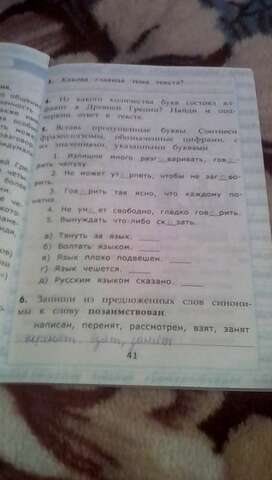 3. Какова главная мысль текста?
4. Из какого количества букв состоял ал-
фавит в Древней Греции? Найди и под-
черкни ответ в тексте.
5. Вставь пропущенные буквы. Соотнеси
фразеологизмы, обозначенные цифрами, с
их значениями, указанными буквами.
1. Излишне много разг_варивать, гов_-
рить чепуху.
2. Не может ут_рпеть, чтобы не заг_во-
рить.
3. Гов_рить так ясно, что каждому по-
нятно.
4. Не ум_ет свободно, гладко гов_рить.
5. Вынуждать что-либо ск_зать.
а) Тянуть за язык. ____
б) Болтать языком. ____
в) Язык плохо подвешен. ____
г) Язык чешется. ____
д) Русским языком сказано. ____
6. Запиши из предложенных слов синони-
мы к слову позаимствован.
написан, перенят, рассмотрен, взят, занят
перенят, взят, занят
41